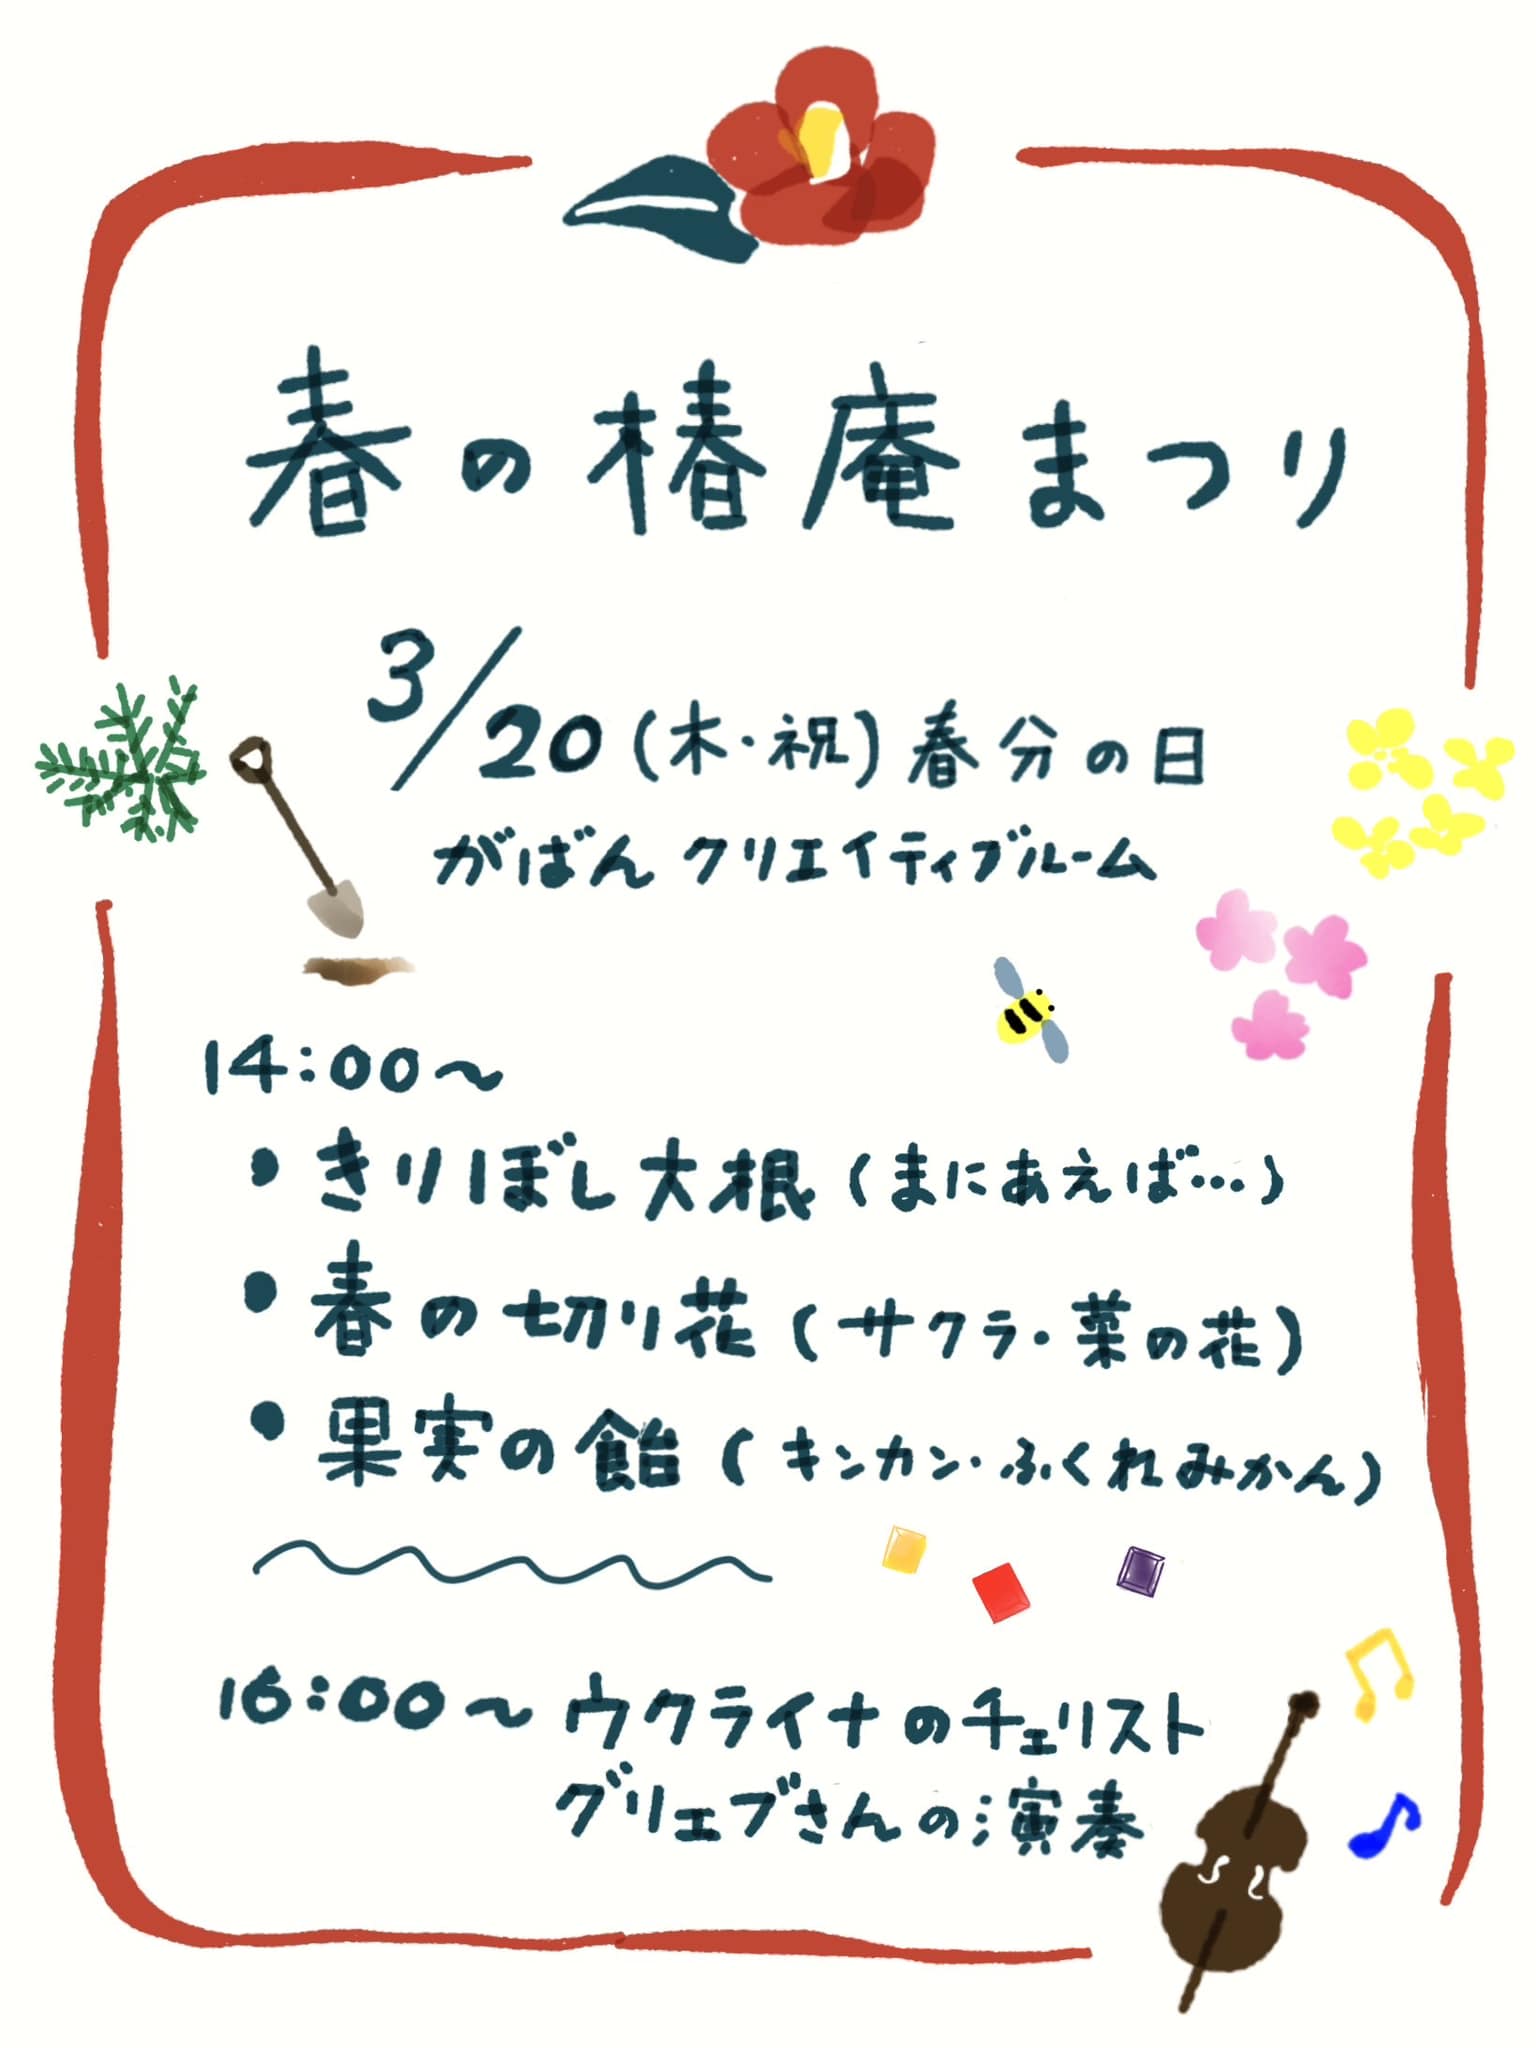 春の椿庵まつり
3/20(木・祝)春分の日
がばん クリエイティブルーム
14:00〜
• きりぼし大根(まにあえば…)
• 春の切り花(サクラ・菜の花)
• 果実の飴(キンカン・ふくれみかん)
16:00〜ウクライナのチェリスト
グリェブさんの演奏